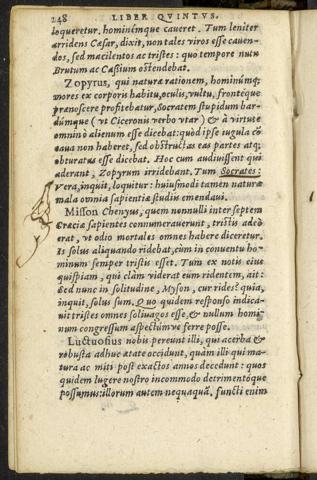 248 LIBER QVINTVS.
loqueretur. hominémque caueret. Tum leniter
arridens Cæsar, dixit, non tales viros esse cauen-
dos, sed macilentos ac tristes: quo tempore nutu
Brutum ac Cassium ostendebat.
Zopyrus, qui naturæ rationem, hominúmq;
mores ex corporis habitu, oculis, vultu, frontéque
prænoscere profitebatur, Socratem stupidum bar-
dúmque (vt Ciceronis verbo vtar) & à virtute
omnino alienum esse dicebat: quòd ipse iugula cō
caua non haberet, sed obstructas eas partes atq;
obturatas esse dicebat. Hoc cum audiuissent qui
aderant, Zopyrum irridebant. Tum Socrates:
Vera, inquit, loquitur: huiusmodi tamen naturæ
mala omnia sapientiæ studiis emendaui.
Misson Chenyus, quem nonnulli inter septem
Græcia sapientes connumerauerunt, tristis adeò
erat, vt odio mortales omnes habere diceretur.
Is solus aliquando ridebat, cùm in conuentu ho-
minum semper tristis esset. Tum ex notis eius
quispiam, qui clàm viderat eum ridentem, ait:
Sed nunc in solitudine, Myson, cur rides? quia,
inquit, solus sum. Quo quidem responso indica-
uit tristes omnes soliuagos esse, & nullum homi-
num congressum aspectúmve ferre posse.
Luctuosius nobis pereunt illi, qui acerba &
robusta adhuc ætate occidunt, quàm illi qui ma-
tura ac miti post exactos annos decedunt: quos
quidem lugere nostro incommodo detrimentóque
possumus: illorum autem nequaquā. functi enim